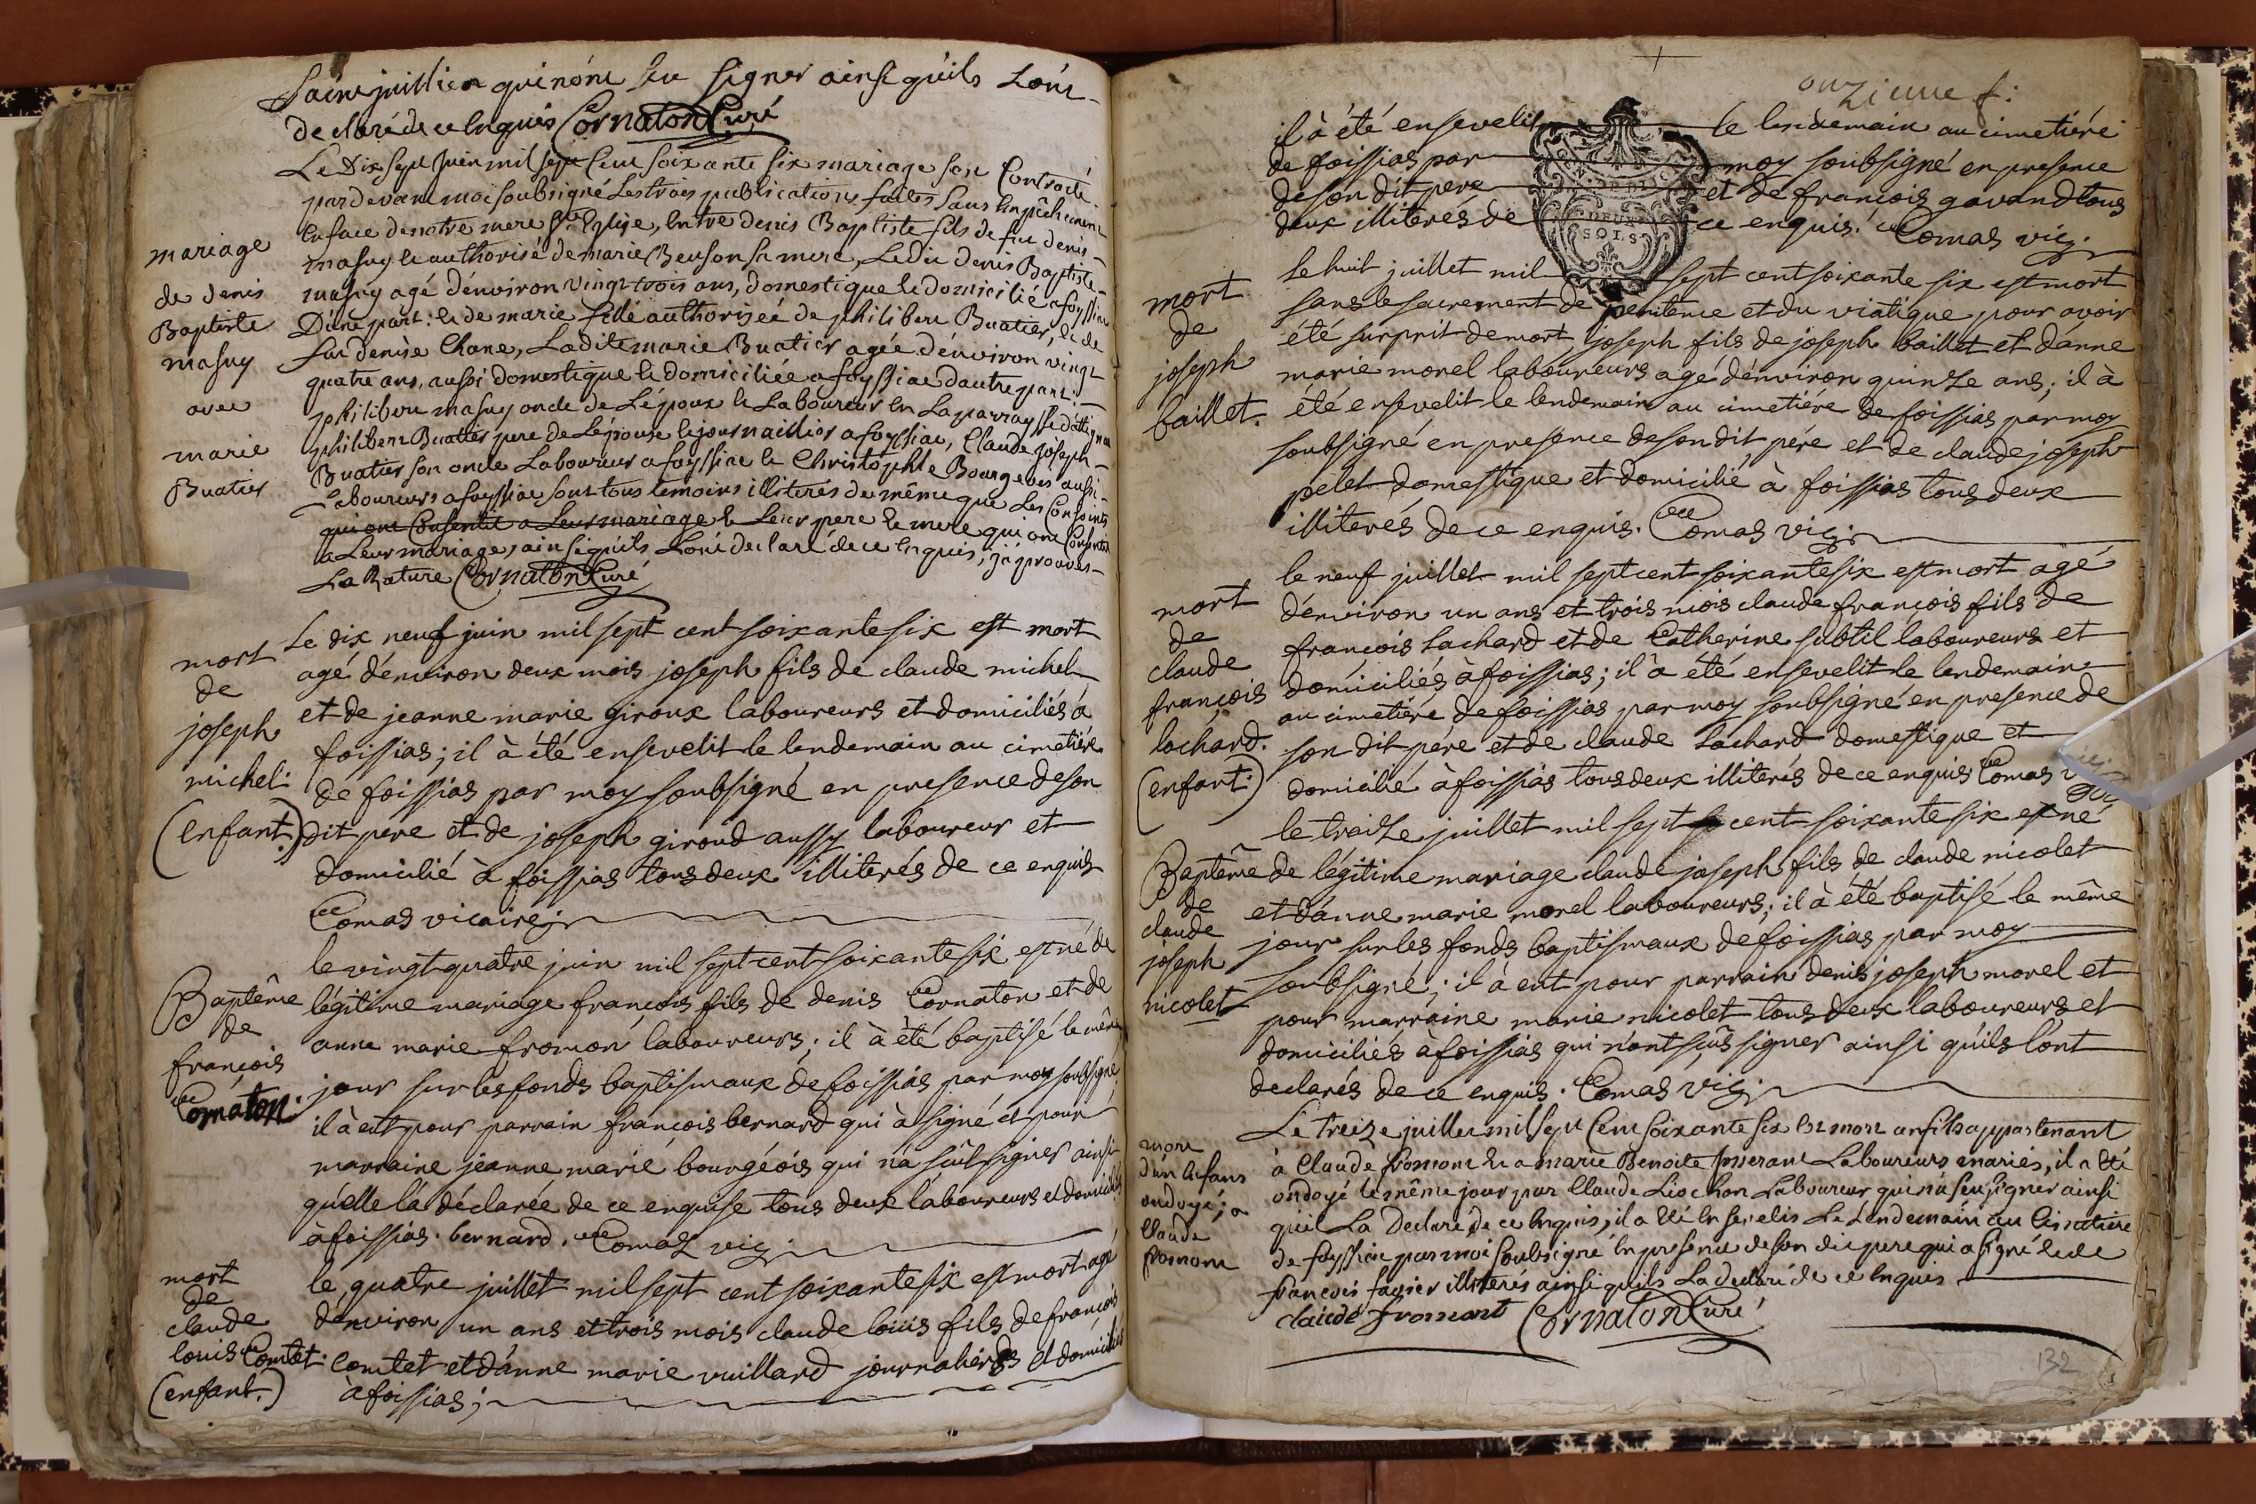 Saint jullien qui nónt seu signer ainsi qu'ils Lónt
declaré de ce Enquis Cornaton Curé
Le Dix sept Juin mil sept Cent soixante six mariage sest Contracté
pardevant moi soubsigné Les trois publications faites sans Empêchement
En face de notre mere Ste Eglise, Entre denis Baptiste fils de feu denis
masuy et authorisé de marie Beuson sa mere, Ledit denis Baptiste
masuy agé dénviron vingt trois ans, domestique et domicilié a foyssiac
D'une part: et de marie fille authorizée de philibert Buatier, et de
fue denise Chane, Ladite marie Buatier agée dénviron vingt
quatre ans, aussi domestique et domiciliée a foyssiac dautre part:
philibert masuy oncle de Lépoux et Laboureur En La parraysse
philibert Buatier pere de Lépouse et journaillier a foyssiac, Claude Joseph
Buatier son oncle Laboureur a foyssiac et Christophle Bourgeois aussi
Laboureurs a foyssiac sont tous temoins illiterés de même que Les Conjoints
qui ont Consentit a Leur mariage et Leur pere et mere qui ont Consentit
a Leur mariage, ainsi qu'ils Lónt declaré de ce Enquis, J'áprouves
La Rature Cornaton Curé
mariage
de denis
Baptiste
masuy
avec
marie
Buatier
mort
de
joseph
michel.
(enfant.)
Le dix neuf juin mil sept cent soixante six est mort
agé dénviron deux mois joseph fils de claude michel
et de jeanne marie giroux laboureurs et domiciliés à
foissias; il à été ensevelit le lendemain au cimetière
de foissias par moy soubsigné en presence de son
dit pere et de joseph giroud aussy laboureur et
domicilié à foissias tous deux illiterés de ce enquis
Comas vicaire
Baptême
de
françois
Cornaton.
le vingt quatre juin mil sept cent soixante six est né de
légitime mariage françois fils de denis Cornaton et de
anne marie fromon laboureurs; il à été baptisé le même
jour sur les fonds baptismaux de foissias par moy soubsigné
il à eut pour parrain françois bernard qui à signé et pour
marraine jeanne marie bourgéois qui n'a sçût signer ainsi
qu'elle lá déclarée de ce enquise tous deux laboureurs et domiciliés
à foissias. bernard. Comas vic.
mort
de
claude
louis Comtet.
(enfant.)
le quatre juillet mil sept cent soixante six est mort agé
dénviron un ans et trois mois claude louis fils de françois
Comtet et dánne marie vuillard journaliers et domiciliés
à foissias;
onzieme f:
il à été ensevelit le lendemain au cimetiére
de foissias par moy soubsigné en presence
de son dit pere et de françois gavand tous
deux illiterés de ce enquis. Comas vic.
DEUX
SOLS
mort
de
joseph
baillet.
le huit juillet mil sept cent soixante six est mort
sans le sacrement de penitence et du viatique pour avoir
été surprit de mort joseph fils de joseph baillet et dánne
marie morel laboureurs agé dénviron quinze ans; il à
été ensevelit le lendemain au cimetiére de foissias par moy
soubsigné en presence de son dit pére et de claude joseph
pelet domestique et domicilié à foissias tous deux
illiterés de ce enquis. Comas vic.
mort
de
claude
françois
lachard.
(enfant.)
le neuf juillet mil sept cent soixante six est mort agé
dénviron un ans et trois mois claude françois fils de
françois Lachard et de Catherine subtil laboureurs et
domiciliés à foissias; il à été ensevelit le lendemain
au cimetiére de foissias par moy soubsigné en presence de
son dit pére et de claude Lachard domestique et
domicilié à foissias tous deux illiterés de ce enquis Comas
Baptême
de
claude
joseph
nicolet
le treize juillet mil sept cent soixante six est né
de légitime mariage claude joseph fils de claude nicolet
et dánne marie morel laboureurs; il à été baptisé le même
jour sur les fonds baptismaux de foissias par moy
soubsigné; il à eut pour parrain denis joseph morel et
pour marraine marie nicolet tous deux laboureurs et
domiciliés à foissias qui n'ont sçûs signer ainsi qu'ils lónt
declarés de ce enquis. Comas vic.
mort
d'ún Enfans
ondoyé; a
Claude
fromont
Le treize juillet mil sept Cent soixante six Est mort un fils appartenant
à Claude fromont Et a marie Benoite Laboureurs mariés, il a Eté
ondoyé le même jour par Claude Liochon Laboureur qui n'a seu signer ainsi
qu'il La Declaré de ce Enquis, il a Eté Enseuelis Le Lendemain au Cimetiere
de foyssiac par moi soubsigné En presence de son dit pere qui a signé et de
françois favier illiterés ainsi qu'ils La declaré de ce Enquis
claude fromont Cornaton Curé
132